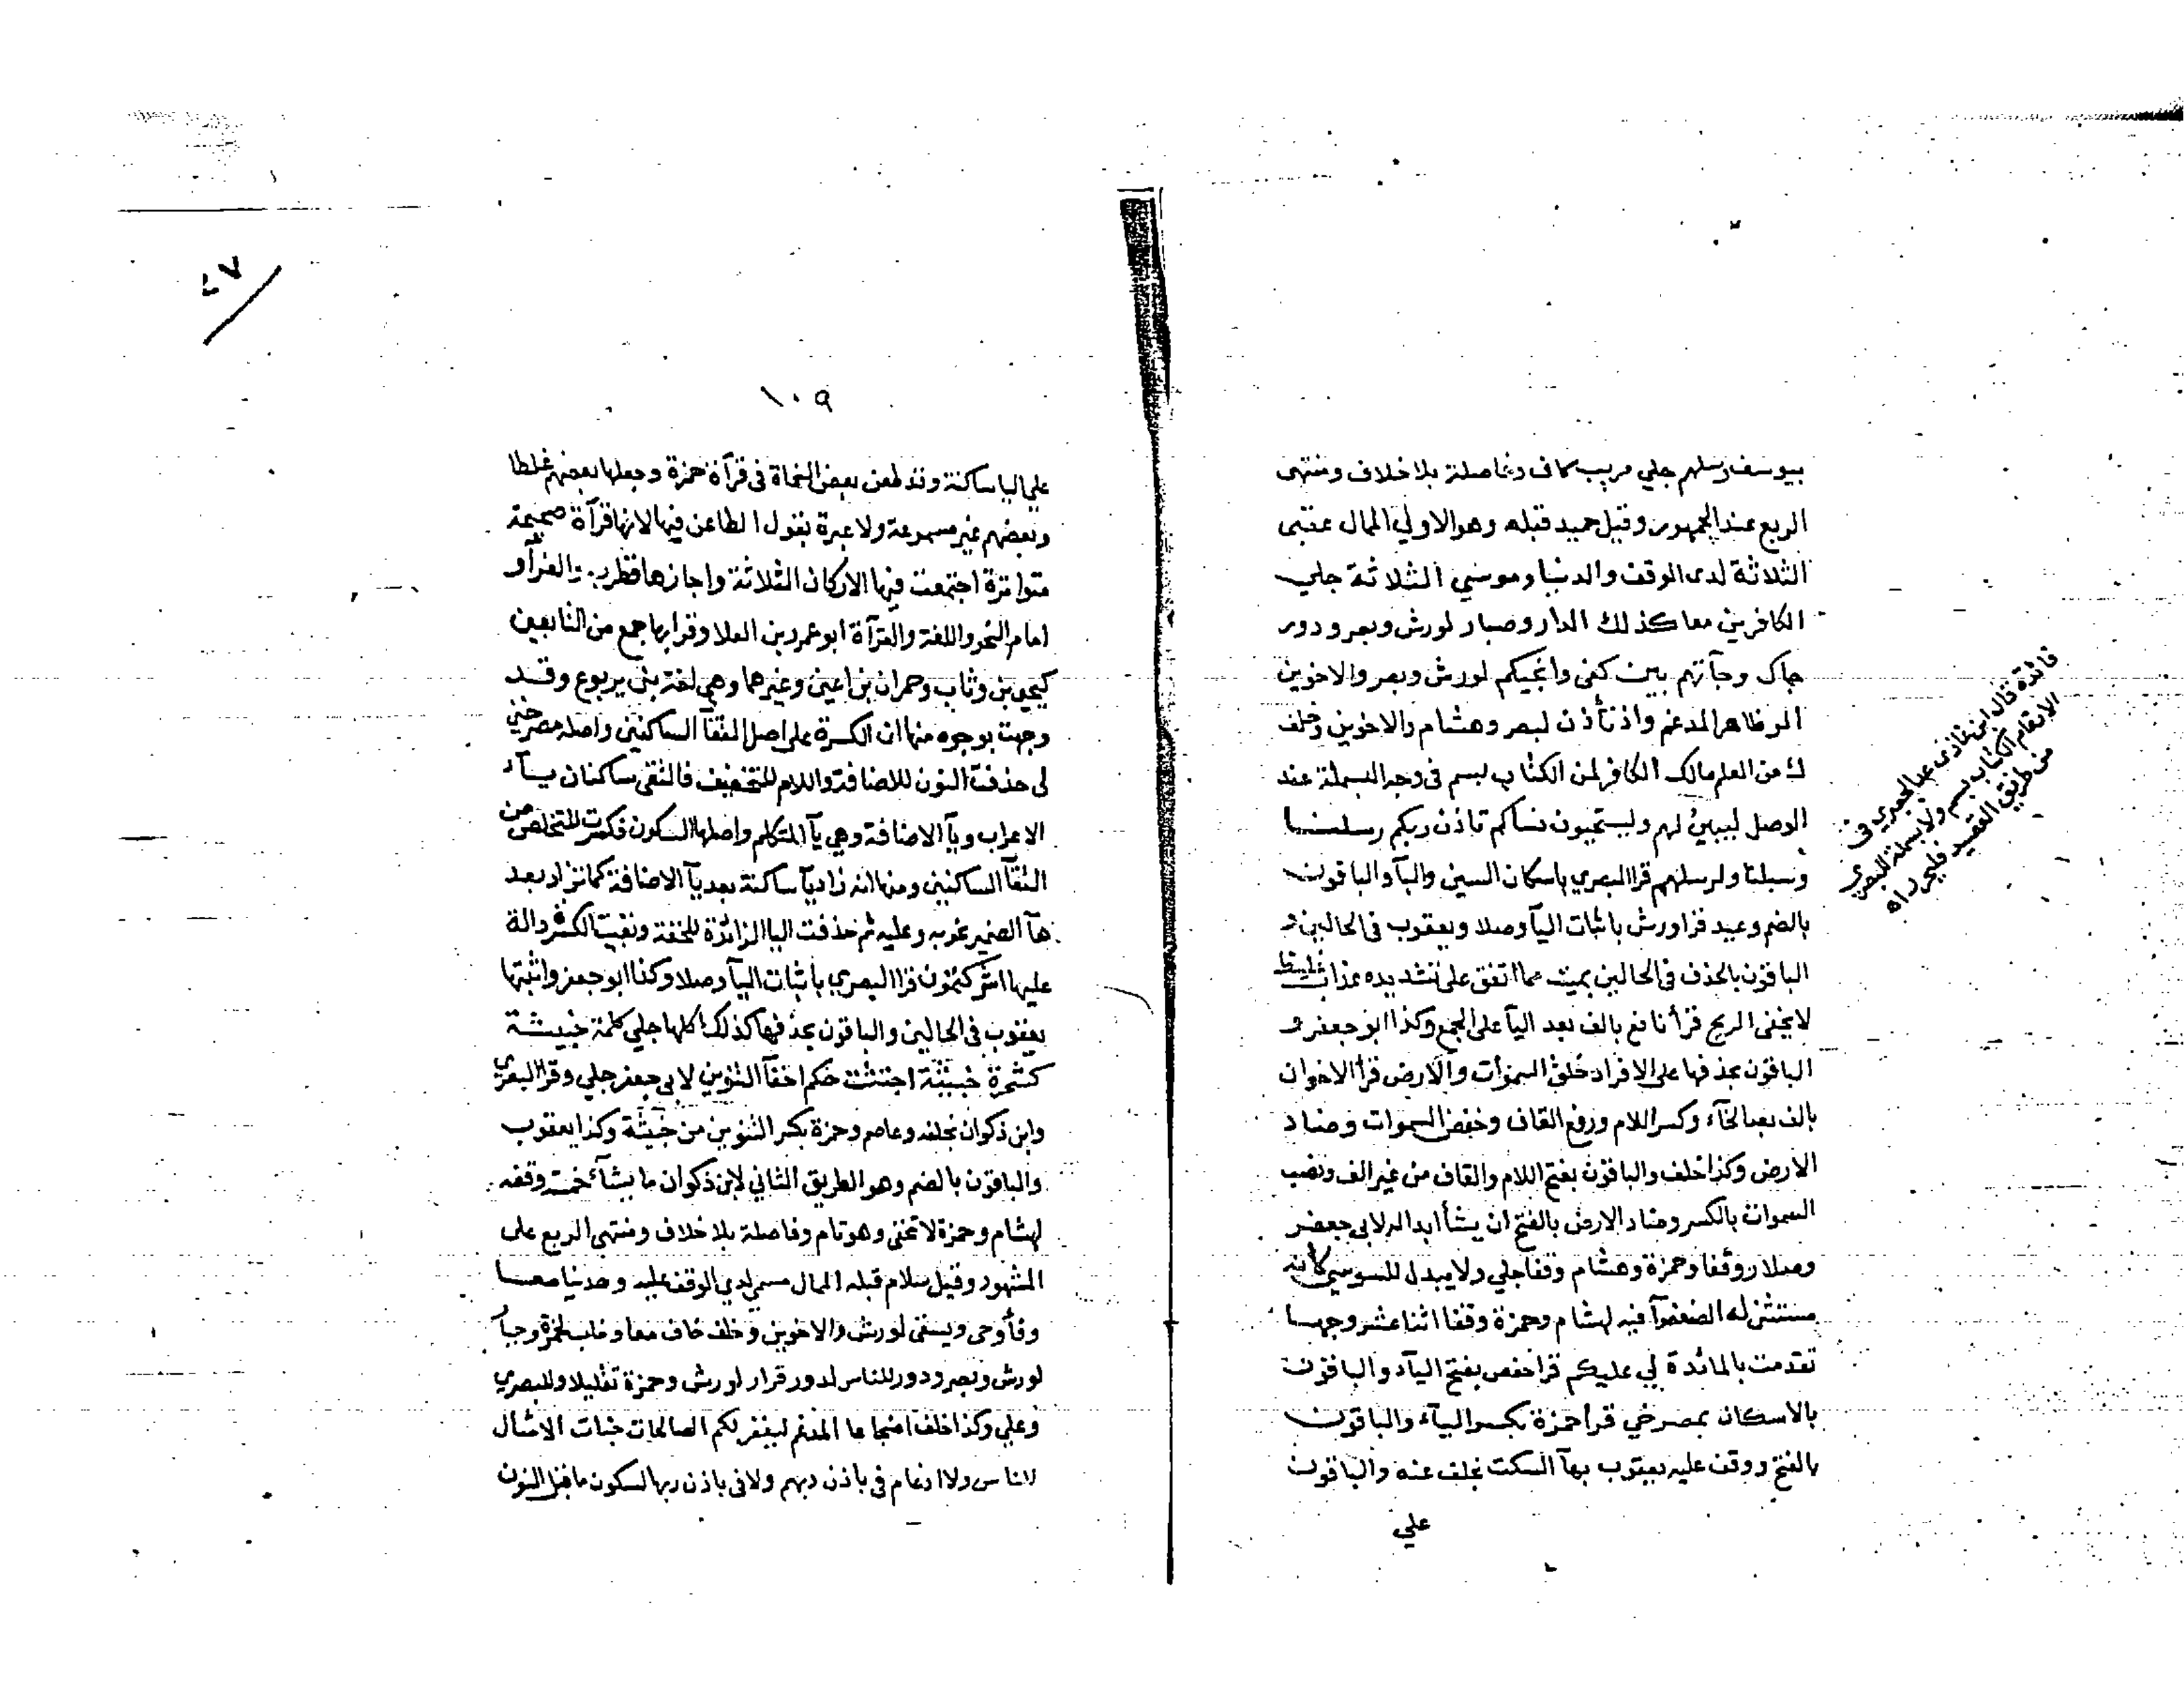 بيوسف رسلهم جلي مريب كاف وفاصلة بلا خلاف ومنتهى
الربع عند الجمهور وقيل حميد قبله وهو الاولي الممال عقبى
الثلاثة لدى الوقف والدنيا وموسي الثلاثة جلي
الكافرين معا كذلك الدار وصبار لورش وبصر ودور
جاك وجآتهم بين كفى وانجيكم لورش وبصر والاخوين
المدغم واذ تأذن لبصر وهشام والاخوين وخلف
ك من العلم مالك الكافرلمن الكتاب بسم في وجه البسملة عند
الوصل ليبين لهم وليستحيون نسآكم تاذن ربكم رسلنا
وسبلنا ولرسلهم قرا البصري باسكان السين والبآ والباقون
بالضم وعيد قرا ورش باثبات اليآ وصلا ويعقوب في الحالين و
الباقون بالحذف في الحالين بميت مما اتفق على تشديده عذاب غليظ
لا يخفى الريح قرأ نافع بالف بعد اليآ على الجمع وكذا ابو جعفر و
الباقون بحذفها على الافراد خلق السموأت والارض قرأ الاخوان
بالف بعد الخآء وكسر اللام ورفع القاف وخفض السموات وضاد
الارض وكذا خلف والباقون بفتح اللام والقاف من غير الف ونصب
السموات بالكسر وضاد الارض بالفتح ان يشأ ابداله لابي جعفر
وصلا ووقفا وحمزة وهشام وقفا جلي ولا يبدل للسوسي كانه
مستثنى له الضعفوآ فيه لهشام وحمزة وقفا اثنا عشر وجها
تقدمت بالمائدة لي عليكم قرا حفص بفتح اليآء والباقون
بالاسكان بمصرخي قرأ حمزة بكسر اليآء والباقون
بالفتح ووقف عليه يعقوب بهآ السكت بخلف عنه والباقون
علي
فائدة قال ابن غازي عن الجعبري في
الادغام الكتاب بسم ولا بسملة للبصري
من طريق القصيد فليحرراه
٤٧
١٠٩
علي اليا ساكنة وقد طعن بعض النحاة في قرآة حمزة وجعلها بعضهم غلطا
وبعضهم غير مسموعة ولا عبرة بقول الطاعن فيها لانها قرآة صحيحة
متواترة اجتمعت فيها الاركان الثلاثة واجازها قطرب والفرآ و
امام النحو واللغة والقرآة ابو عمرو بن العلا وقرا بها جمع من التابعين
كيحيى بن وثاب وحمران بن اعين وغيرهما وهي لغة بني يربوع وقد
وجهت بوجوه منها ان الكسرة على اصل التقآ الساكنين واصله مصرخين
لي حذفت النون للاضافة واللام للتخفيف فالتقى ساكنان يآء
الاعراب ويآ الاضافة وهي يآ المتكلم واصلها السكون فكسرت للتخلص من
التقآ الساكنين ومنها انه زاد يآ ساكنة بعد يآ الاضافة كما تزاد بعد
هآ الضمير نحو به وعليه ثم حذفت اليا الزائدة للخفة وبقيت الكسرة دالة
عليها اشركتمون قرا البصري باثبات اليآ وصلا وكذا ابو جعفر واثبتها
يعقوب في الحالين والباقون بحذفها كذلك اكلها جلي كلمة خبيثة
كشجرة خبيثة اجتثت حكم اخفآ التنوين لابي جعفر جلي وقرا البصري
وابن ذكوان بخلفه وعاصم وحمزة بكسر التنوين من خبيثة وكذا يعقوب
والباقون بالضم وهو الطريق الثاني لابن ذكوان ما يشآء خمسة وقفه
لهشام وحمزة لا تخفى وهو تام وفاصلة بلا خلاف ومنتهى الربع على
المشهور وقيل سلام قبله الممال مسمى لدى الوقف عليه وهدنيا معا
وفأوحى ويسقى لورش والاخوين وخلف خاف معا وخاب لحمزة وجآ
لورش وبصر ودور للناس لدور قرار لورش وحمزة تقليلا وللبصري
وعلي وكذا خلف اضجاعا المدغم ليغفر لكم الصالحات جنات الامثال
للناس ولا ادغام في باذن ربهم ولا في باذن ربها لسكون ما قبل النون